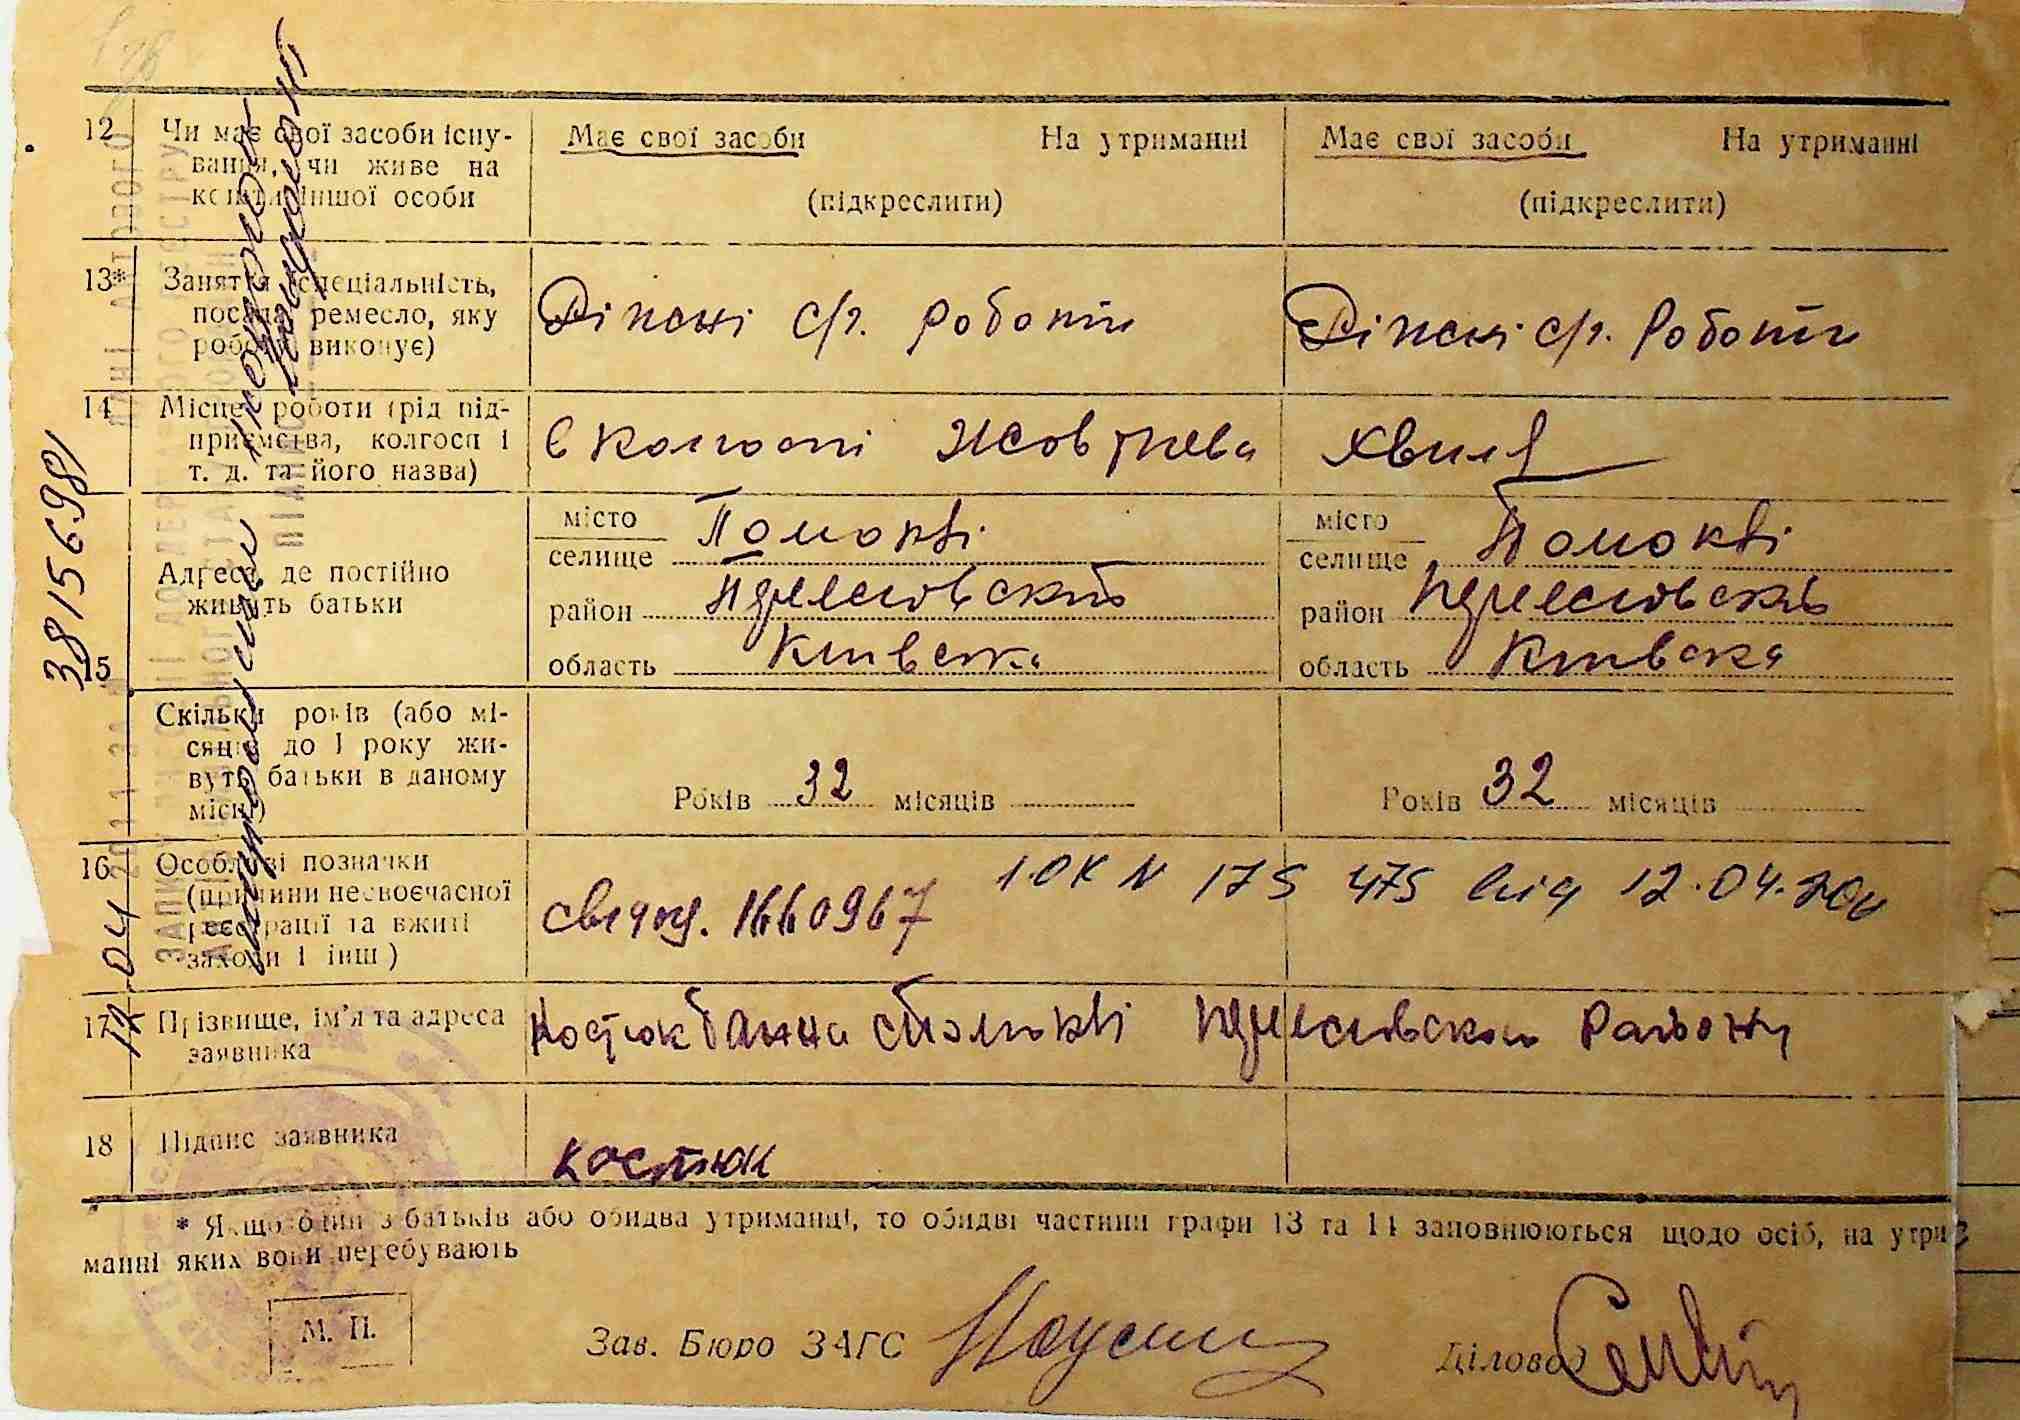 12 Чи має свої засоби існу- Має свої засоби На утриманні Має свої засоби На утриманні
вання, чи живе на
кошти іншої особи (підкреслити) (підкреслити)
13* Заняття (спеціальність,
посада, ремесло, яку Різні с/г. роботи Різні с/г. роботи
роботу виконує)
14 Місце роботи (рід під-
приємства, колгосп і В колгоспі Жовтнева Хвиля
т. д. та його назва)
15 Адреса, де постійно
живуть батьки
місто Помоклі місто Помоклі
селище селище
район район
область Київська область Київська
Скільки років (або мі-
сяців до 1 року жи-
вуть батьки в даному
місці) Років 32 місяців Років 32 місяців
16 Особливі позначки
(причини несвоєчасної 175 475 від 12.04.
реєстрації та вжиті 1660967
заходи і інш)
17 Прізвище, ім'я та адреса Костюк Ганна с Помоклі району
заявника
18 Підпис заявника Костюк
* Якщо один з батьків або обидва утриманці, то обидві частини графи 13 та 14 заповнюються щодо осіб, на утри-
манні яких вони перебувають
М. П. Зав. Бюро ЗАГС Діловод
3815698